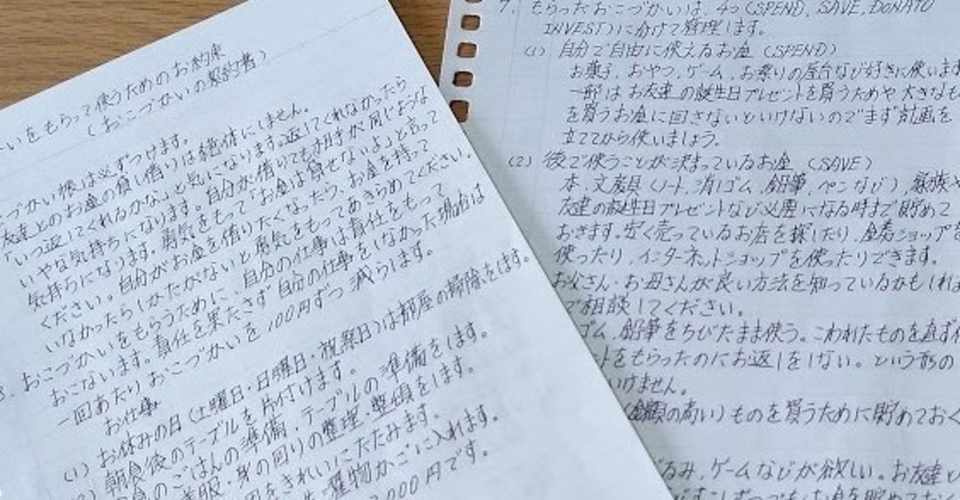 いをもらって使うためのお約束
(おこづかいの契約書)
づかい帳は必ずつけます。
友達とのお金の貸し借りは絶体にしません。
「いつ返してくれるかな」と気になります。返してくれなかったら
いやな気持ちになります。自分が借りてもお相手が同じような
気持ちになります。勇気をもって「お金は貸せないよ」と言って
ください。自分がお金を借りたくなったら、お金を持って
いなかったらしかたがないと勇気をもってあきらめてください。
3. おこづかいをもらうために、自分の仕事は責任をもって
おこないます。責任を果たさず自分の仕事をしなかった場合は
一回あたりおこづかいを100円ずつ減らします。
お仕事
(1) お休みの日(土曜日・日曜日・祝祭日)は部屋の掃除をします。
朝食後のテーブルを片付けます。
食のごはんの準備、テーブルの準備をします。
服・身の回りの整理・整頓をします。
をきれいにたたみます。
濯物かごに入れます。
,000円です。
7. もらったおこづかいは、4つ(SPEND, SAVE, DONATO
INVEST)に分けて管理します。
(1) 自分で自由に使えるお金(SPEND)
お菓子、おやつ、ゲーム、お祭りの屋台など好きに使いま
一部はお友達の誕生日プレゼントを買うためや大きなも
を買うお金に回さないといけないのでまず計画を
立ててから使いましょう。
(2) 後で使うことが決まっているお金(SAVE)
本、文房具(ノート、消しゴム、鉛筆、ペンなど)、家族や
友達の誕生日プレゼントなど必要になる時まで貯めて
おきます。安く売っているお店を探したり、金券ショップを
使ったり、インターネットショップを使ったりできます。
お父さん・お母さんが良い方法を知っているかもしれ
ご相談してください。
ゴム、鉛筆をちびたまま使う。こわれたものを直す
ントをもらったのにお返しをしない。という形の
いけません。
(金額の高い)ものを買うために貯めておく
るみ、ゲームなどが欲しい。お友達と